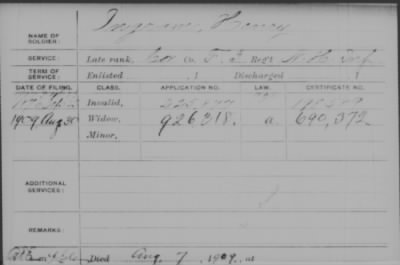 NAME OF SOLDIER: Ingram, Henry
SERVICE: Late rank, Co. F, 3 Reg't N.H. Inf.
TERM OF SERVICE: Enlisted , 1 Discharged 1
DATE OF FILING. CLASS. APPLICATION NO. LAW. CERTIFICATE NO.
Invalid,
1909, Aug 30 Widow, 926,318. a 690,372
Minor,
ADDITIONAL SERVICES:
REMARKS:
Died Aug 7, 1909, at